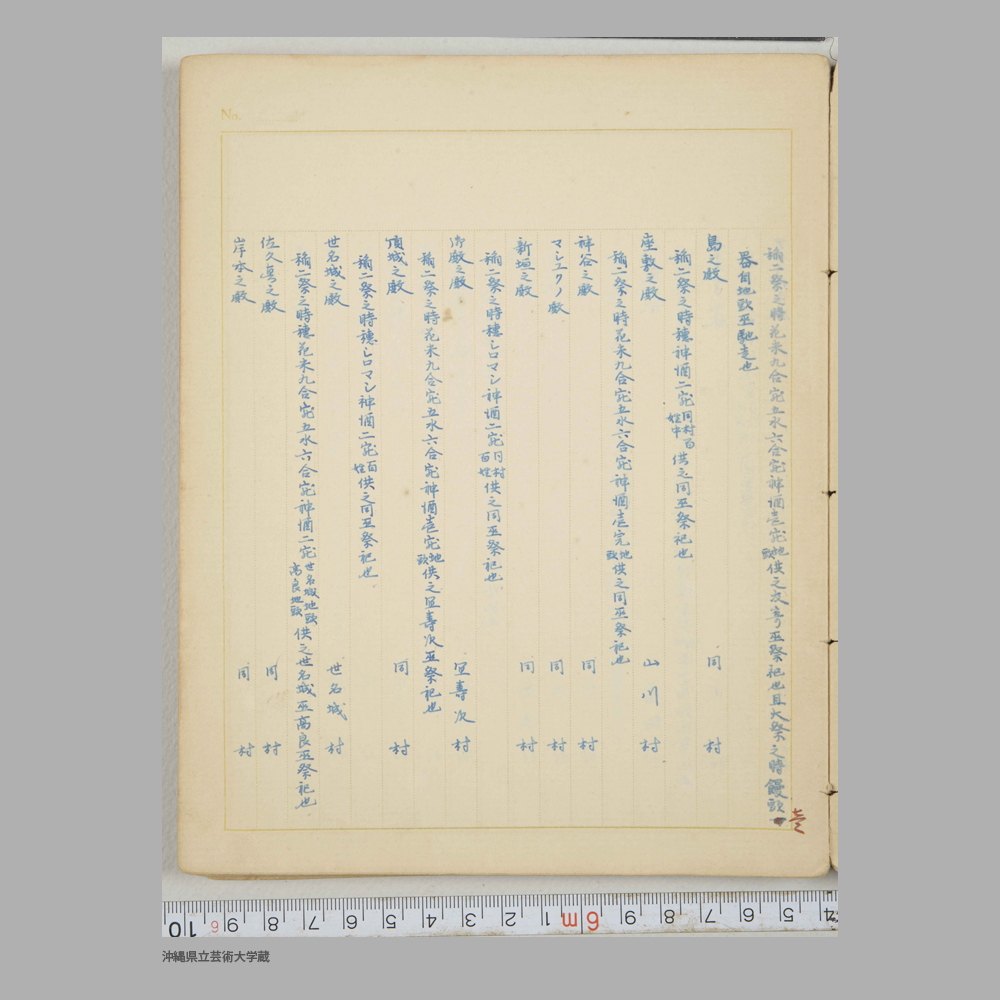 稲二祭之時花米九合宛五水六合宛神酒壱宛地頭供之次寄巫祭祀也且大祭之時饅頭一
壱
器自地頭巫馳走也
島之殿 同村
稲二祭之時穂神酒二宛同村百姓中供之同巫祭祀也
座敷之殿 山川村
稲二祭之時花米九合宛五水六合宛神酒壱宛地頭供之同巫祭祀也
神谷之殿 同村
マシユクノ殿 同村
新垣之殿 同村
稲二祭之時穂シロマシ神酒二宛同村百姓供之同巫祭祀也
之殿 宜寿次村
稲二祭之時花米九合宛五水六合宛神酒壱宛地頭供之宜壽次巫祭祀也
城之殿 同村
稲二祭之時穂シロマシ神酒二宛百姓供之同巫祭祀也
世名城之殿 世名城村
稲二祭之時穂花米九合宛五水六合宛神酒二宛世名城地頭高良地頭供之世名城巫高良巫祭祀也
佐久真之殿 同村
岸本之殿 同村
No.
沖縄県立芸術大学蔵